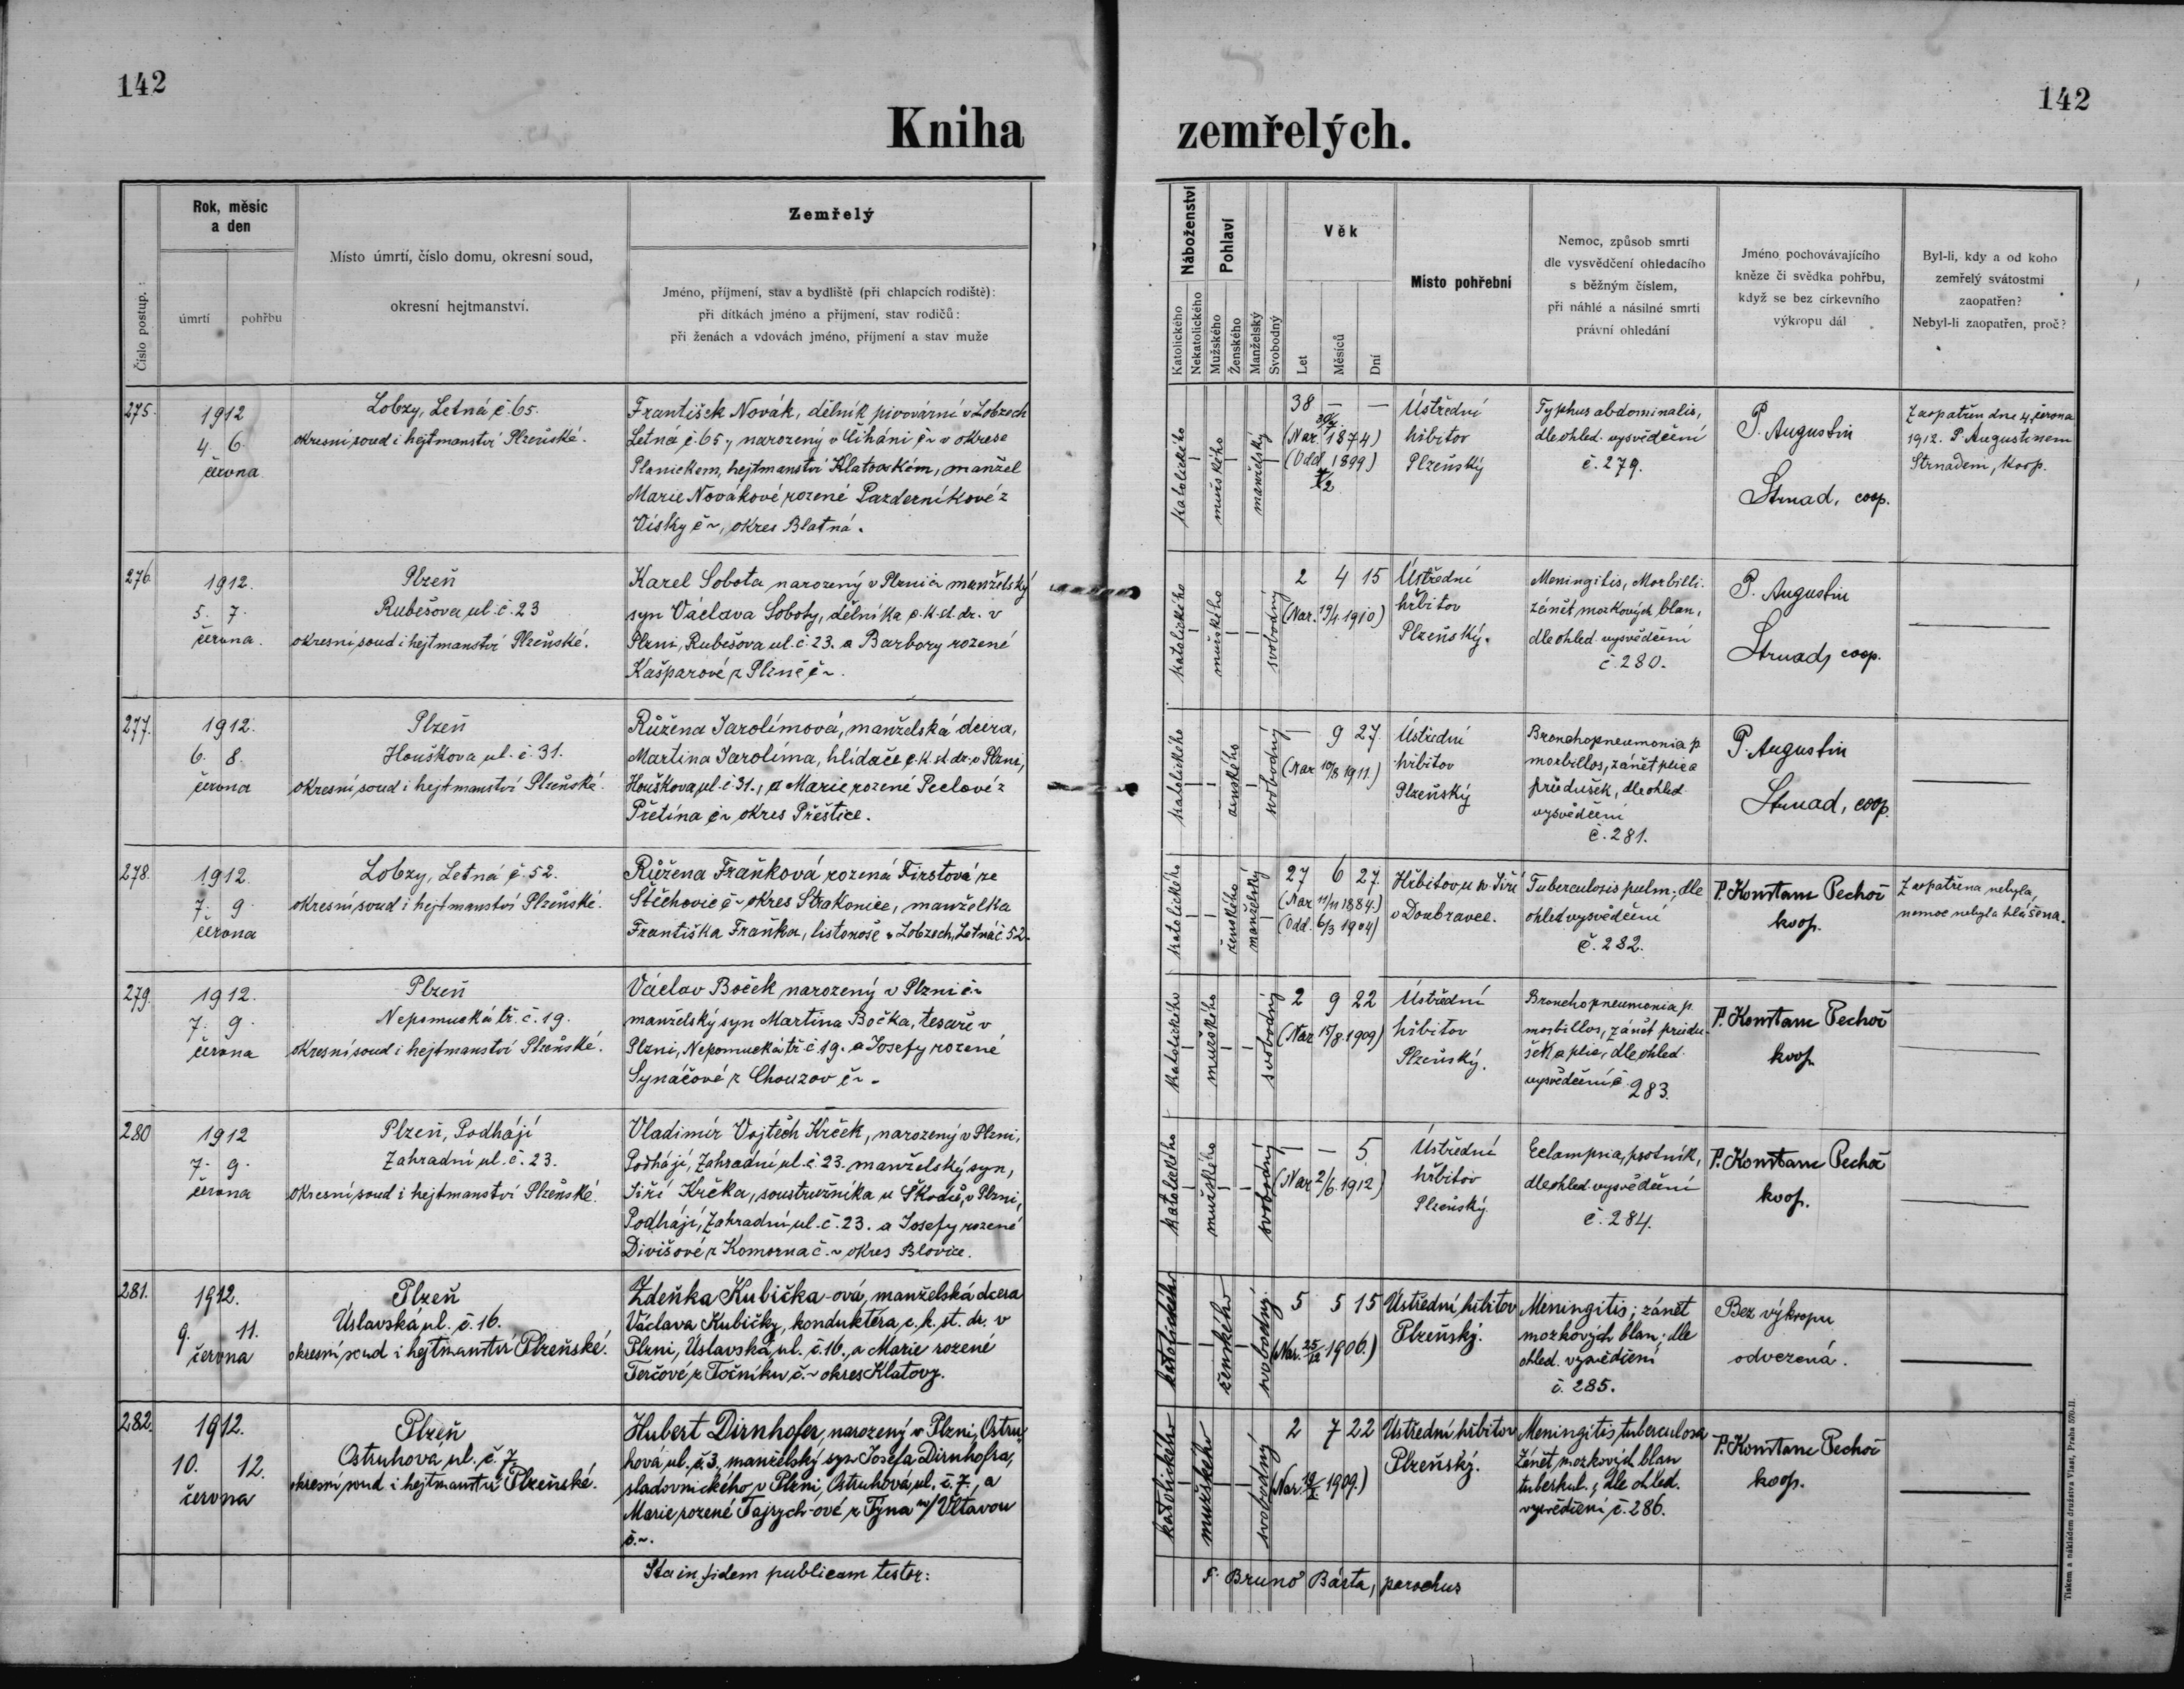 142
142
Kniha
zemřelých.
Číslo postup.
Rok, měsíc
a den
úmrtí
pohřbu
Místo úmrtí, číslo domu, okresní soud,
okresní hejtmanství.
Zemřelý
Jméno, příjmení, stav a bydliště (při chlapcích rodiště):
při dítkách jméno a příjmení, stav rodičů:
při ženách a vdovách jméno, příjmení a stav muže
Náboženství
Katolického
Nekatolického
Pohlaví
Mužského
Ženského
Manželský
Svobodný
Věk
Let
Měsíců
Dní
Místo pohřební
Nemoc, způsob smrti
dle vysvědčení ohledacího
s běžným číslem,
při náhlé a násilné smrti
právní ohledání
Jméno pochovávajícího
kněze či svědka pohřbu,
když se bez církevního
výkropu dál
Byl-li, kdy a od koho
zemřelý svátostmi
zaopatřen?
Nebyl-li zaopatřen, proč?
275.
1912
4. 6.
června
Lobzy, Letná č. 65.
okresní soud i hejtmanství Plzeňské.
František Novák, dělník pivovární v Lobzech
Letná č. 65., narozený v Číháni č ~ v okrese
Planickem, hejtmanství Klatovském, manžel
Marie Novákové rozené Pazderníkové z
Vísky č ~, okres Blatná.
katolického
mužského
manželský
38 — —
(Nar. 30/4 1874)
(Odd. 1899)
7/2
Ústřední
hřbitov
Plzeňský
Typhus abdominalis,
dle ohled. vysvědčení
č. 279.
P. Augustin
Strnad, coop.
Zaopatřen dne 4. června
1912. P. Augustinem
Strnadem, koop.
276.
1912.
5. 7.
června.
Plzeň
Rubešova ul. č. 23
okresní soud i hejtmanství Plzeňské.
Karel Sobota narozený v Plzni č ~ manželský
syn Václava Soboty, dělníka c. k. st. dr. v
Plzni, Rubešova ul. č. 23. a Barbory rozené
Kašparové z Plzně č ~.
katolického
mužského
svobodný
2 4 15
(Nar. 19/1 1910)
Ústřední
hřbitov
Plzeňský.
Meningitis, Morbilli.
zánět mozkových blan,
dle ohled. vysvědčení
č. 280.
P. Augustin
Strnad, coop.
277.
1912.
6. 8.
června
Plzeň
Houškova ul. č. 31.
okresní soud i hejtmanství Plzeňské.
Růžena Jarolímová, manželská dcera,
Martina Jarolíma, hlídače c. k. st. dr. v Plzni,
Houškova ul. č. 31., a Marie rozené Peclové z
Přetína č ~ okres Přeštice.
katolického
ženského
svobodný
— 9 27.
(Nar. 10/8 1911.)
Ústřední
hřbitov
Plzeňský
Bronchopneumonia p.
morbillos, zánět plic a
průdušek, dle ohled.
vysvědčení
č. 281.
P. Augustin
Strnad, coop.
278.
1912.
7. 9.
června
Lobzy, Letná č. 52.
okresní soud i hejtmanství Plzeňské.
Růžena Fraňková rozená Firstová ze
Štěchovic č ~ okres Strakonice, manželka
Františka Fraňka, listonoše v Lobzech, Letná č. 52.
katolického
ženského
manželský
27 6 27.
(Nar. 11/11 1884.)
(Odd. 6/3 1904)
Hřbitov u sv. Jiří
v Doubravce.
Tuberculosis pulm., dle
ohled. vysvědčení
č. 282.
P. Konstanc Pechoč
koop.
Zaopatřena nebyla,
nemoc nebyla hlášena.
279.
1912.
7. 9.
června
Plzeň
Nepomucká tř. č. 19.
okresní soud i hejtmanství Plzeňské.
Václav Boček narozený v Plzni č ~
manželský syn Martina Bočka, tesaře v
Plzni, Nepomucká tř. č. 19. a Josefy rozené
Synáčové z Chouzov č ~.
katolického
mužského
svobodný
2 9 22
(Nar. 15/8 1909)
Ústřední
hřbitov
Plzeňský.
Bronchopneumonia p.
morbillos, zánět průdu-
šek a plic, dle ohled.
vysvědčení č. 283.
P. Konstanc Pechoč
koop.
280
1912
7. 9.
června
Plzeň, Podhájí
Zahradní ul. č. 23.
okresní soud i hejtmanství Plzeňské.
Vladimír Vojtěch Krček, narozený v Plzni,
Podhájí, Zahradní ul. č. 23. manželský syn,
Jiří Krčka, soustružníka u Škodů, v Plzni,
Podhájí, Zahradní ul. č. 23. a Josefy rozené
Divišové z Komorna č. ~ okres Blovice.
katolického
mužského
svobodný
— — 5.
(Nar. 2/6. 1912)
Ústřední
hřbitov
Plzeňský
Eclampsia, psotník,
dle ohled. vysvědčení
č. 284.
P. Konstanc Pechoč
koop.
281.
1912.
9. 11.
června
Plzeň
Úslavská ul. č. 16.
okresní soud i hejtmanství Plzeňské.
Zdeňka Kubička-ová, manželská dcera
Václava Kubičky, konduktéra c. k. st. dr. v
Plzni, Úslavská ul. č. 16., a Marie rozené
Terčové z Točníku č. ~ okres Klatovy.
katolického
ženského
svobodný
5 5 15
(Nar. 25/12 1906.)
Ústřední hřbitov
Plzeňský.
Meningitis; zánět
mozkových blan; dle
ohled. vysvědčení
č. 285.
Bez výkropu
odvezená.
282.
1912.
10. 12.
června
Plzeň
Ostruhová ul. č. 7.
okresní soud i hejtmanství Plzeňské.
Hubert Dirnhofer, narozený v Plzni, Ostru-
hová ul. č. 3., manželský syn Josefa Dirnhofra,
sladovnického v Plzni, Ostruhová ul. č. 7., a
Marie rozené Tajrych-ové z Týna n/ Vltavou
č. ~.
katolického
mužského
svobodný
2 7 22
(Nar. 19/X 1909.)
Ústřední hřbitov
Plzeňský.
Meningitis tuberculosa
Zánět mozkových blan
tuberkul.; dle ohled.
vysvědčení č. 286.
P. Konstanc Pechoč
koop.
Ita in fidem publicam testor:
P. Bruno Bárta, parochus
Tiskem a nákladem družstva Vlast, Praha 570-II.